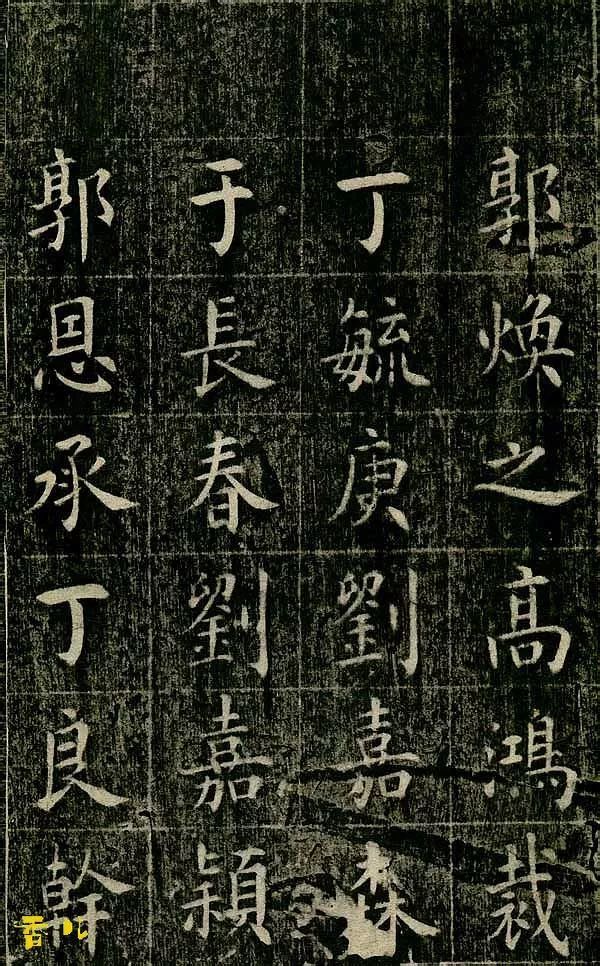 郭煥之高鴻裁
丁毓庚劉嘉森
于長春劉嘉穎
郭恩承丁良幹